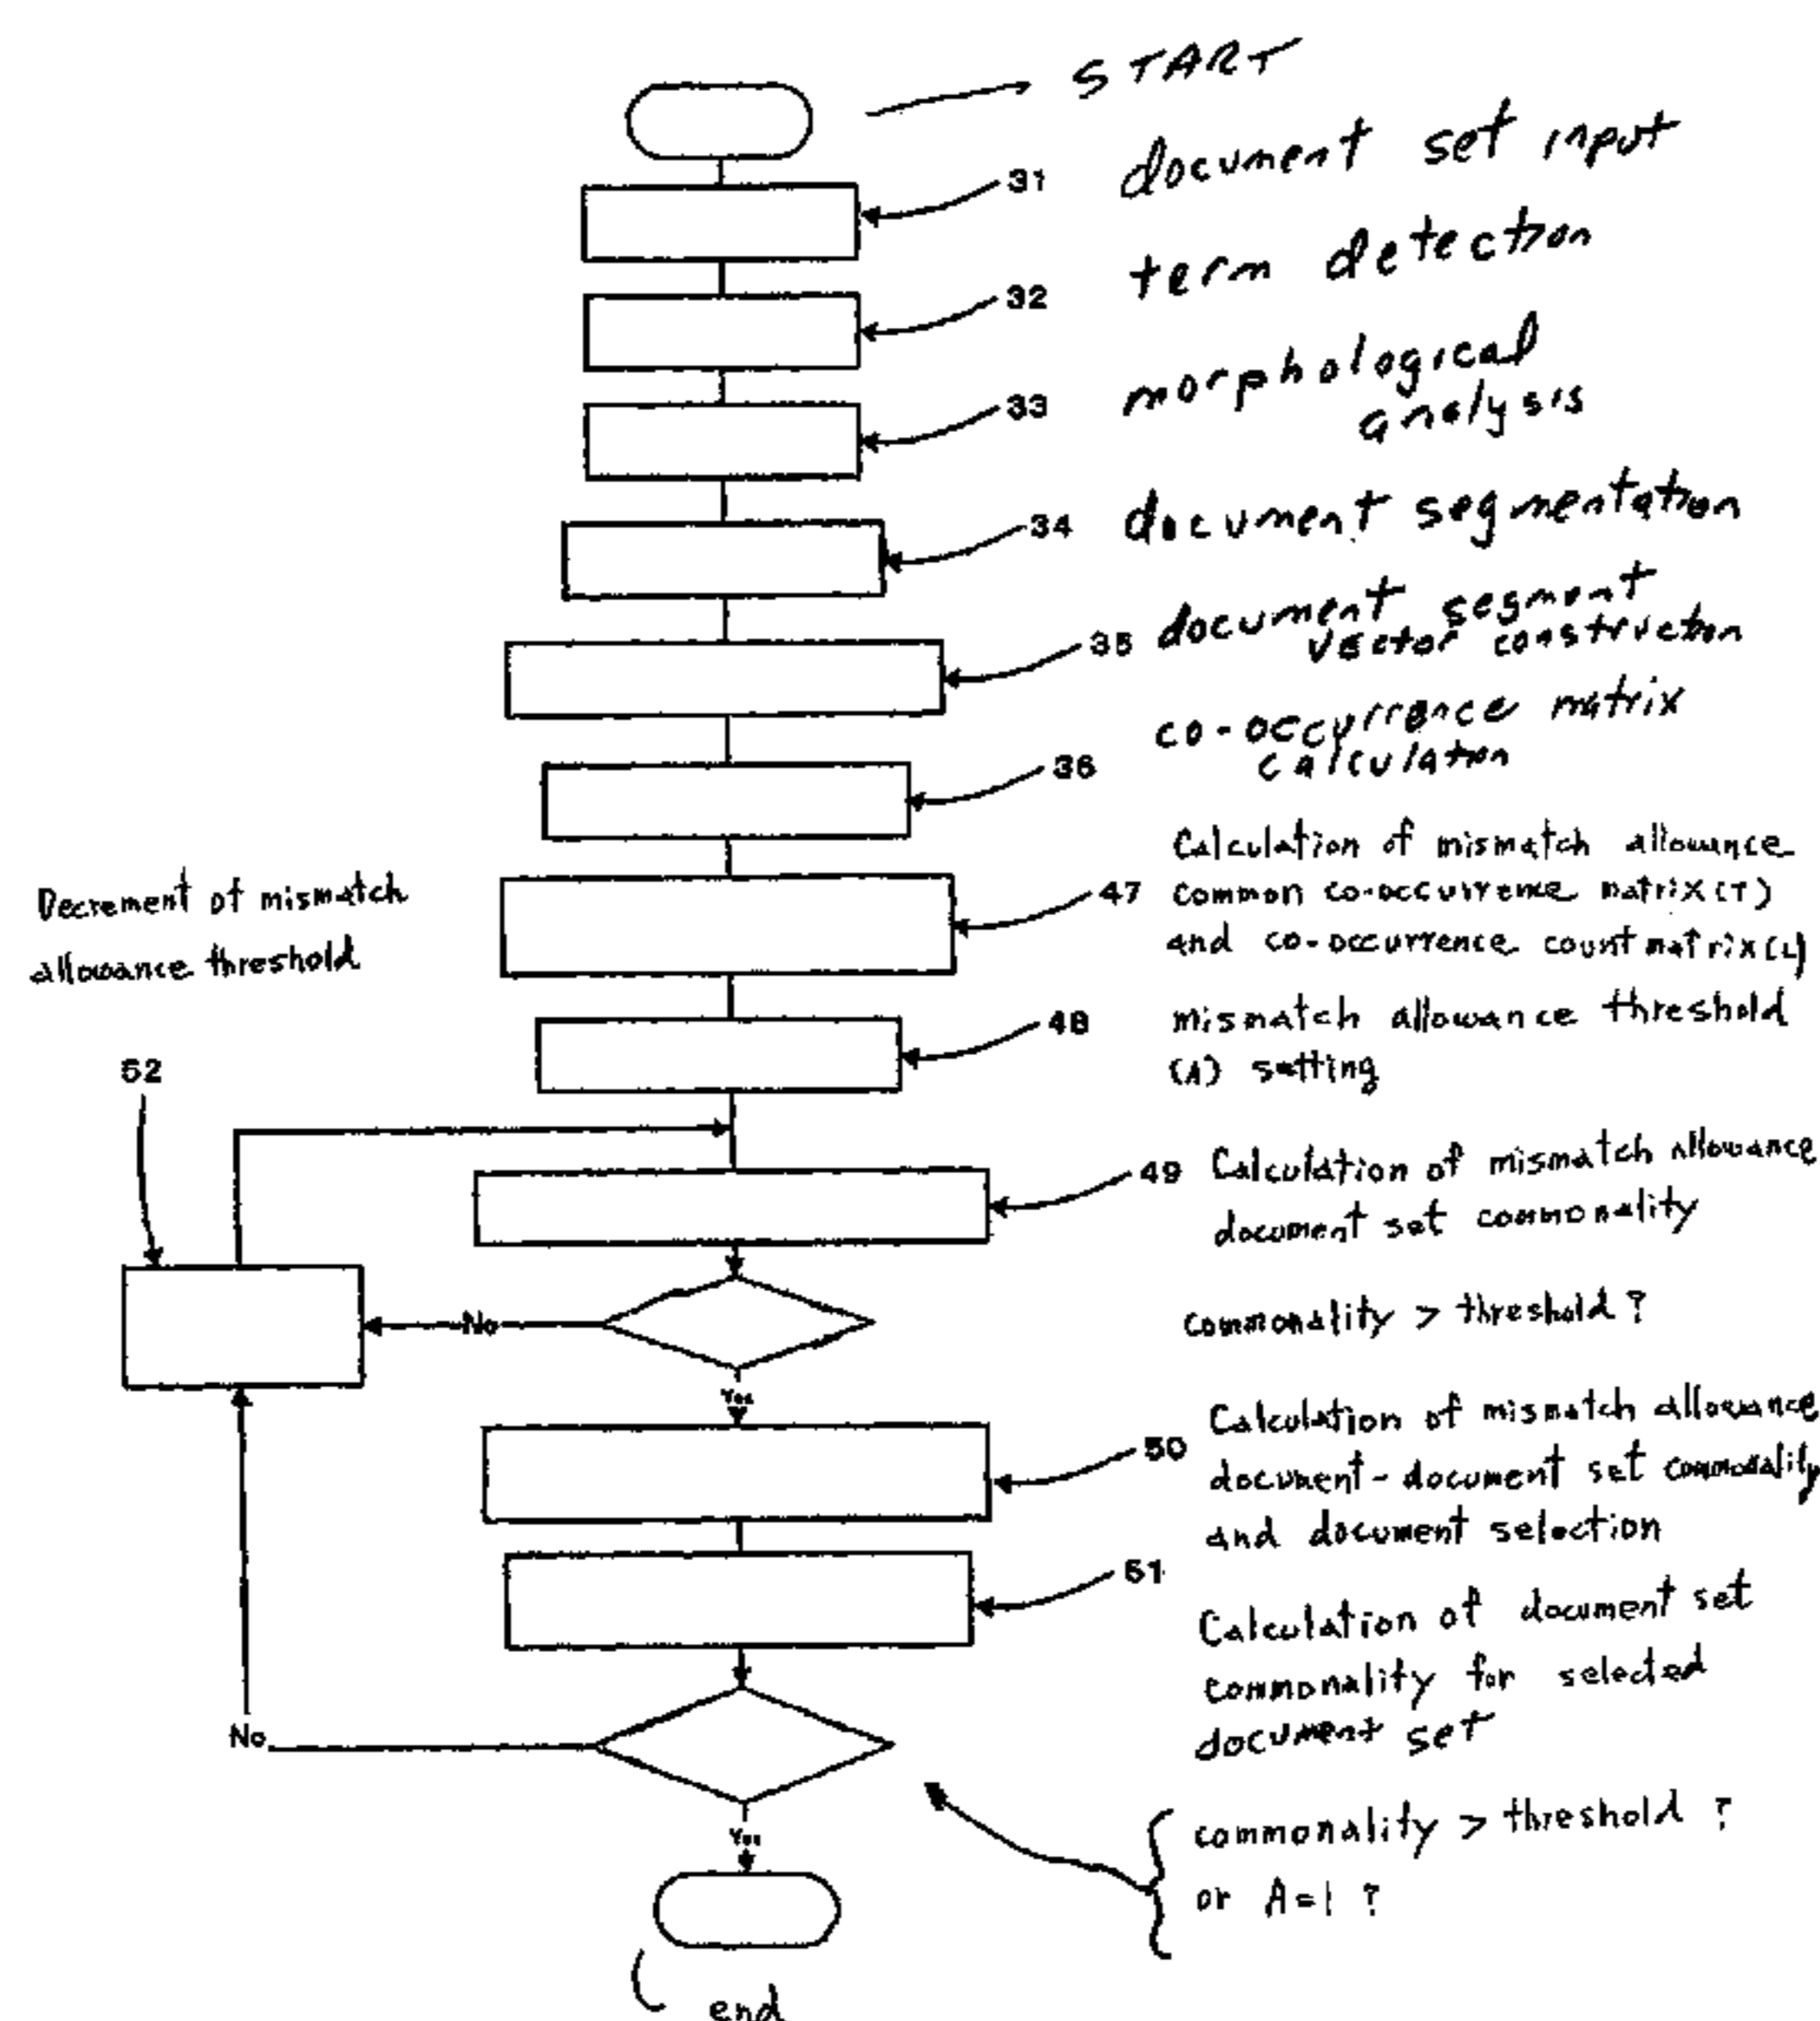 START
31
document set input
32
term detection
33
morphological
analysis
34
document segmentation
35
document segment
vector construction
36
co-occurrence matrix
calculation
47
Calculation of mismatch allowance
common co-occurrence matrix (T)
and co-occurrence count matrix (L)
Decrement of mismatch
allowance threshold
48
mismatch allowance threshold
(A) setting
52
49
Calculation of mismatch allowance
document set commonality
No
commonality > threshold ?
Yes
50
Calculation of mismatch allowance
document - document set commonality
and document selection
51
Calculation of document set
commonality for selected
document set
No
commonality > threshold ?
or A=1 ?
Yes
end